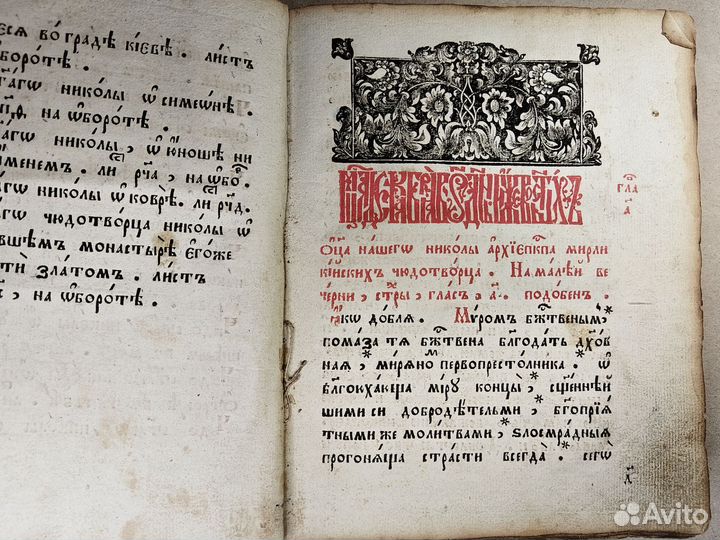 еся во градѣ кіевѣ . листъ
ѡборотѣ .
таго николы ѡ симеѡнѣ .
на ѡборотѣ .
аго николы , ѡ юноше ни
именемъ . ли рча , на ѡбо .
аго николы ѡ коврѣ . ли рчд .
аго чюдотворца николы ѡ
вшемъ монастырѣ егоже
ти златом . листъ
, на ѡборотѣ .
гла
а
оца нашегѡ николы архіепкпа мирли
кійскихъ чюдотворца . На малѣй ве
черни , стры , гласъ , а . подобен .
Ꙗкѡ добля . Мѵром бжтвеным
помаза тя бжтвена блгодать дхов
ная , миряно первопрестолника . ѡ
блгоюхавша міру концы , сщеннѣй
шими си добродѣтельми , бгопрія
тными же молитвами , ѕлосмрадныя
прогоняѧ страсти всегда . сегѡ
Avito